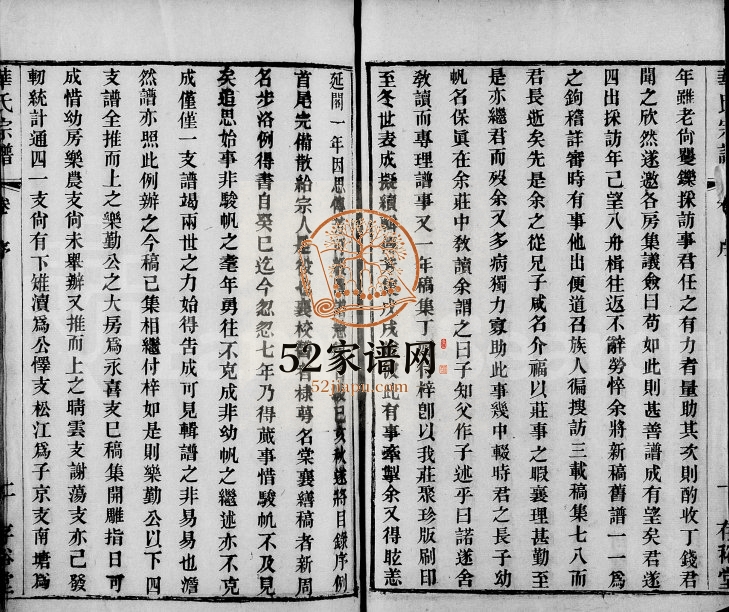 年雖老尙矍鑠採訪事君任之有力者量助其次則酌收丁錢君
聞之欣然遂邀各房集議僉曰苟如此則甚善譜成有望矣君遂
四出採訪年己望八舟楫往返不辭勞悴余將新稿舊譜一一爲
之鉤稽詳審時有事他出便道召族人徧搜訪三載稿集七八而
君長逝矣先是余之從兄子咸名介福以莊事之暇襄理甚勤至
是亦繼君而歿余又多病獨力寡助此事幾中輟時君之長子幼
帆名保眞在余莊中敎讀余謂之曰子知父作子述乎曰諾遂舍
敎讀而專理譜事又一年稿集丁 梓卽以我莊聚珍版刷印
至冬世表成擬續輯 芳集戊戌 彼此有事牽掣余又得眩恙
延閣一年因思傳 己亥秋遂將目錄序例
首尾完備散給宗人是役也襄校 者棣萼名棠襄繕稿者新周
名步洛例得書自癸巳迄今忽忽七年乃得蕆事惜駿帆不及見
矣追思始事非駿帆之耄年勇往不克成非幼帆之繼述亦不克
成僅僅一支譜竭兩世之力始得告成可見輯譜之非易易也澹
然譜亦照此例辦之今稿已集相繼付梓如是則樂勤公以下四
支譜全推而上之樂勤公之大房爲永喜支巳稿集開雕指日可
成惜幼房樂農支尙未舉辦又推而上之晴雲支謝蕩支亦己發
軔統計通四一支尙有下雉瀆爲公懌支松江爲子京支南塘爲
華氏宗譜 卷 序
存裕堂
52家谱网
52jiapu.com